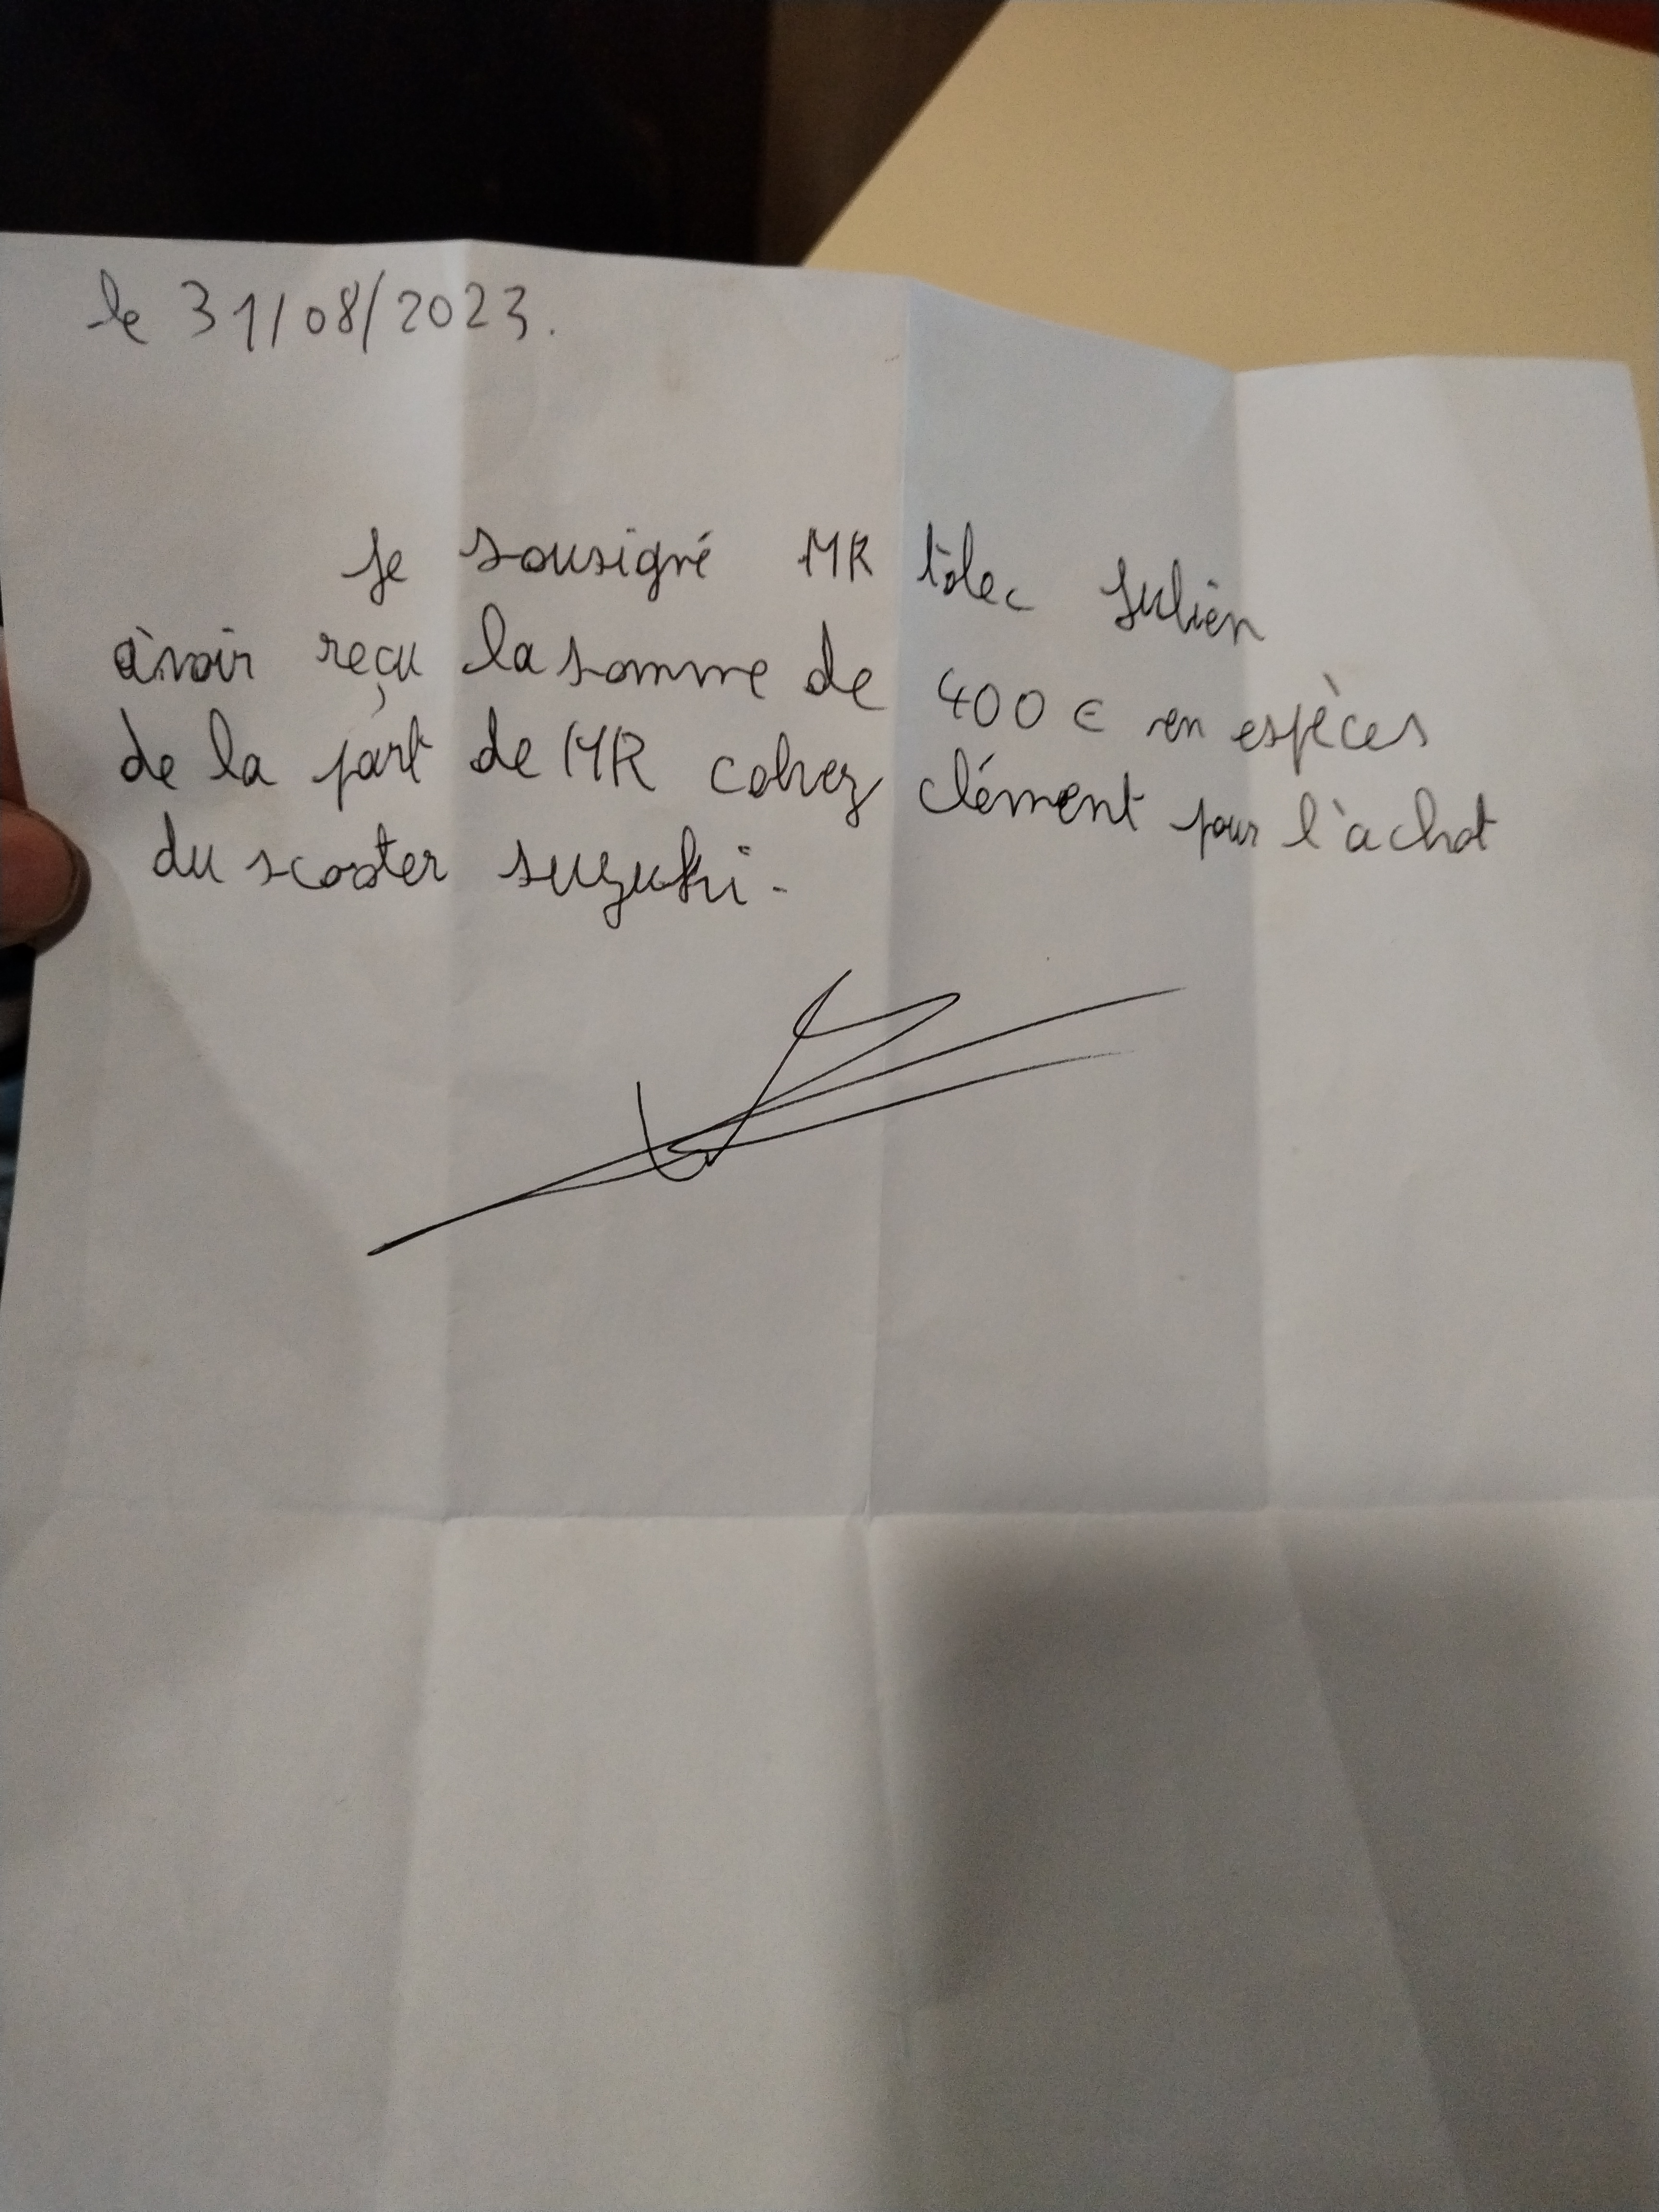 le 31/08/2023.
Je sousigné MR tolec Julien
avoir reçu la somme de 400 € en espèces
de la part de MR colvez clément pour l'achat
du scooter suzuki.